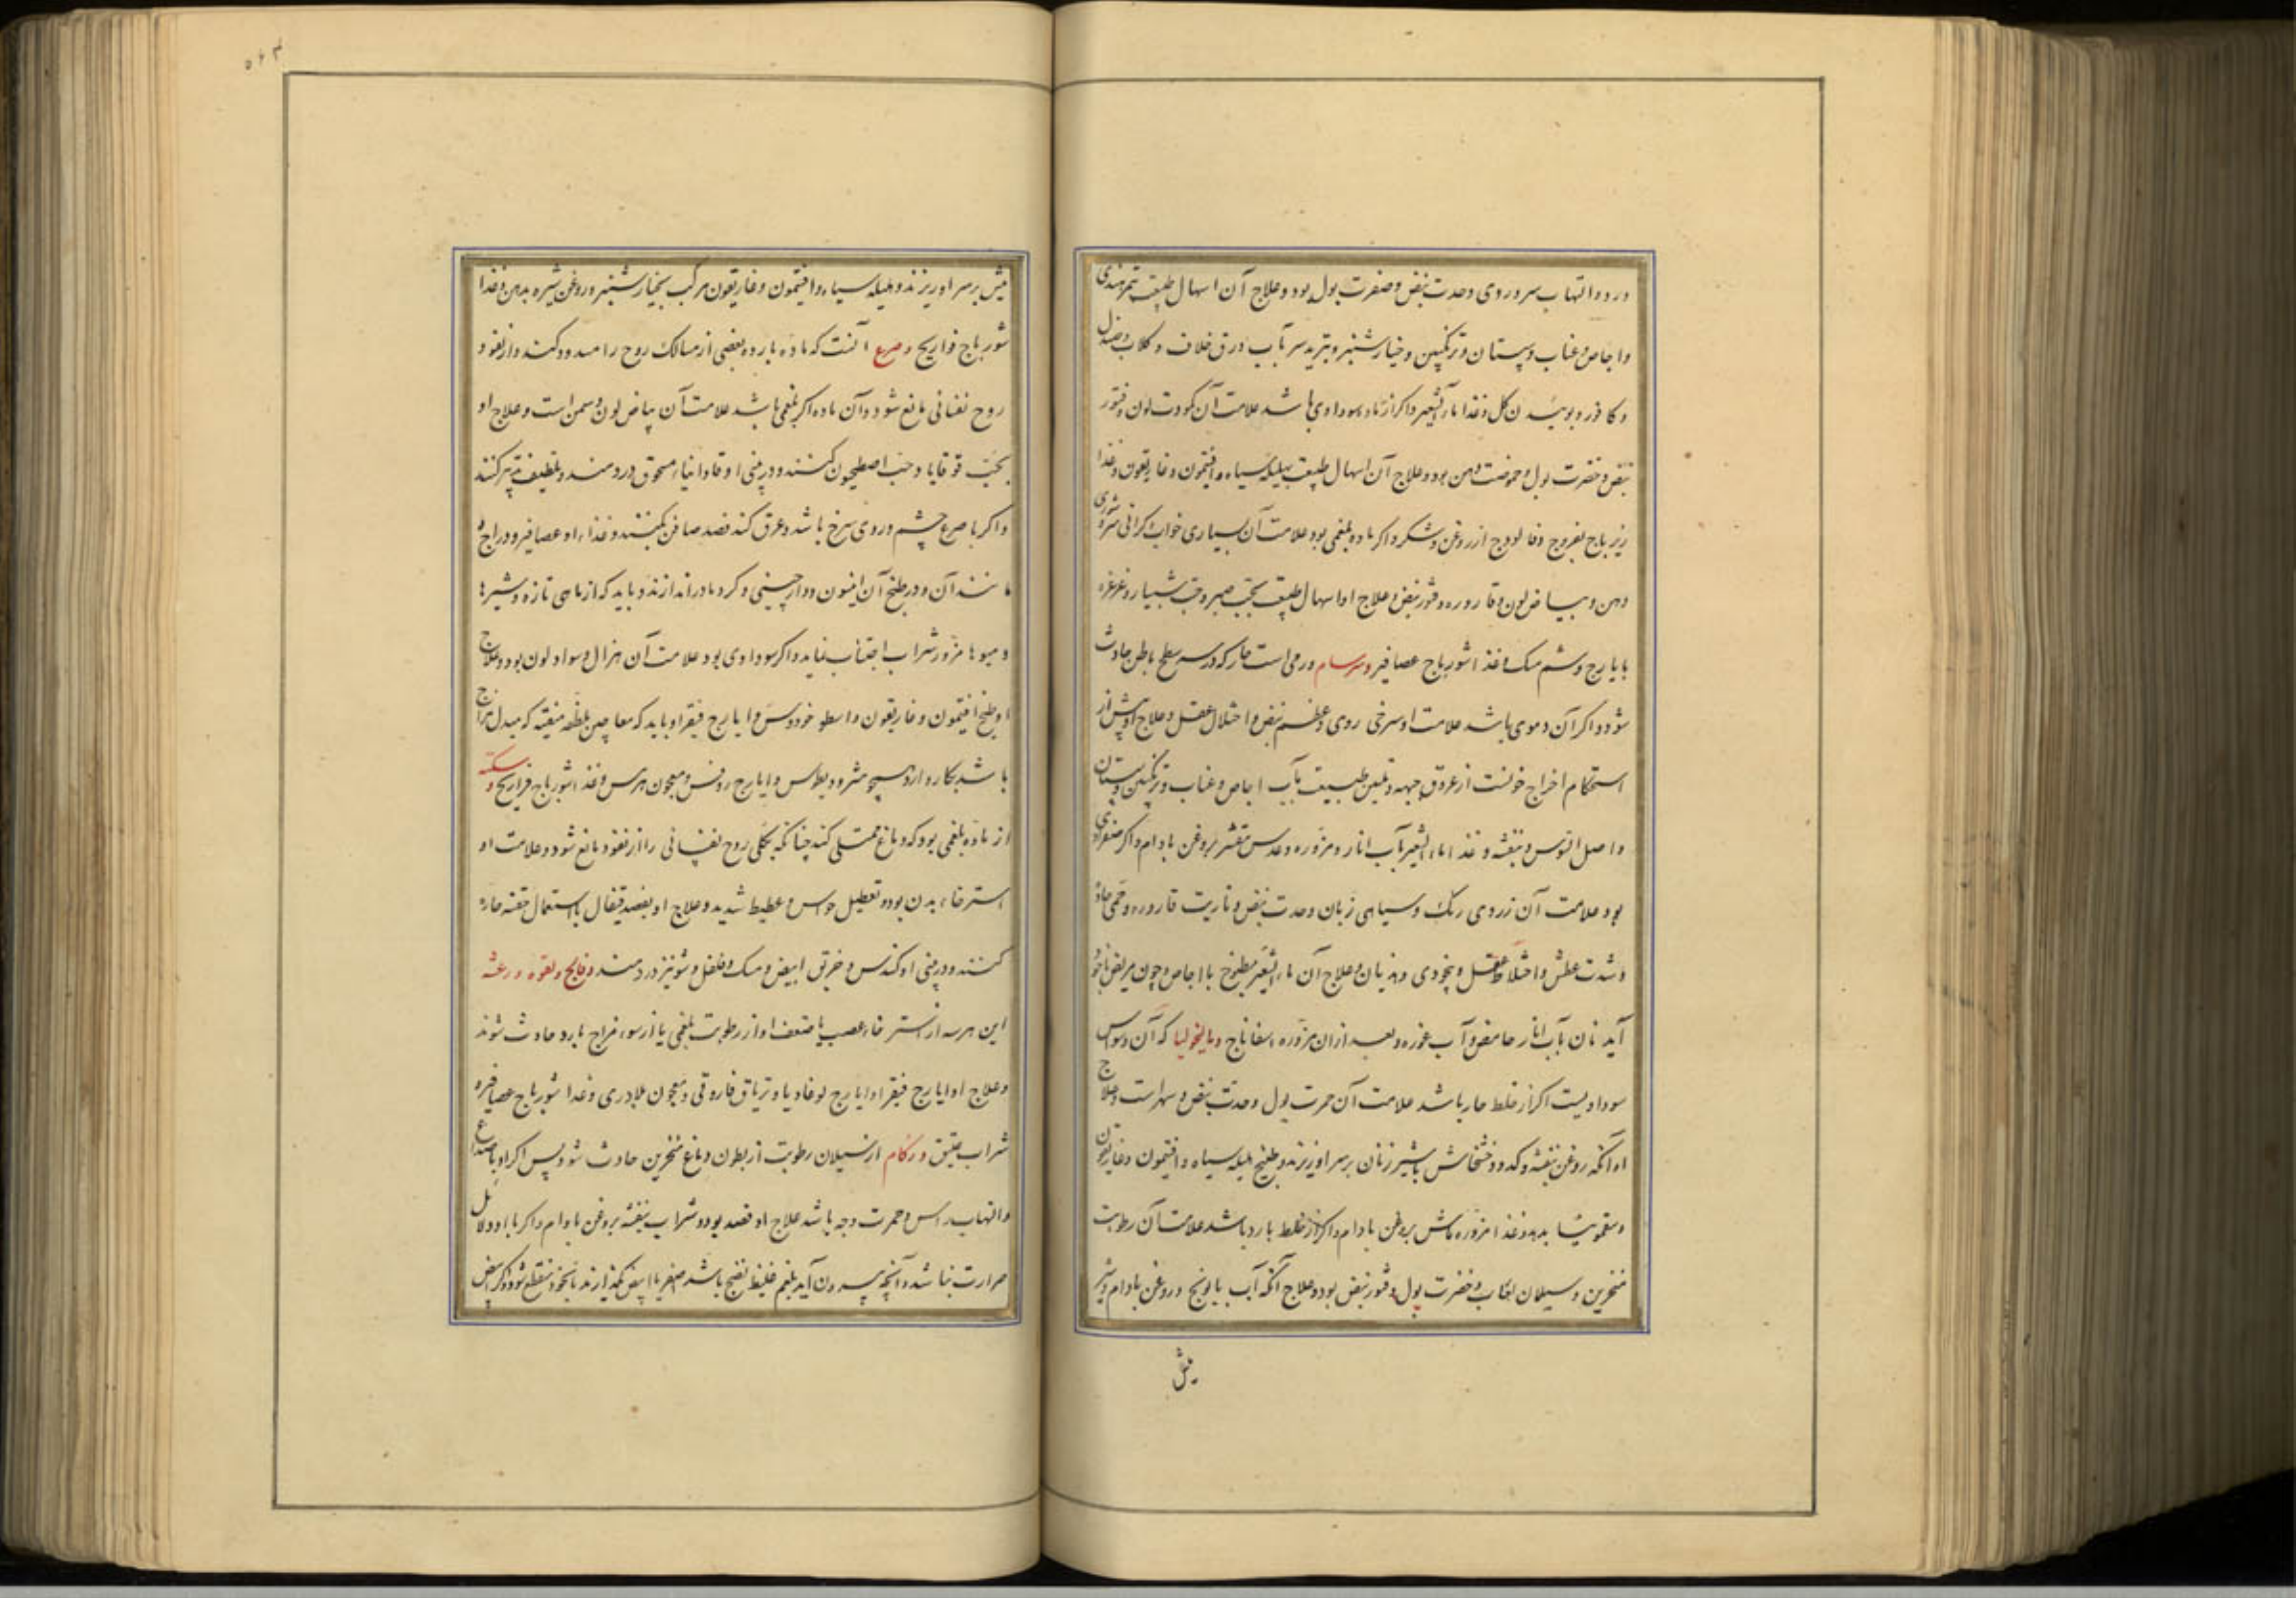 درد و التهاب سر و روی و حدت نبض و صفرت بول بود و علاج آن اسهال طبیعت بتمر هندی
و اجاص و عناب و سپستان و ترنگبین و خیارشنبر و تبرید سر بآب ورق خلاف و گلاب و صندل
و کافور و بوئیدن گل و غذا ماء الشعیر و اگر از ماده سوداوی باشد علامت آن کمودت لون و فتور
نبض و خضرت بول و حموضت دهن بود و علاج آن اسهال طبیعت بهلیله سیاه و افتیمون و غاریقون و غذا
زیرباج بفروج و فالودج از روغن و شکر و اگر ماده بلغمی بود علامت آن بسیاری خواب و گرانی سر و تری
دهن و بیاض لون و قاروره و فتور نبض و علاج او اسهال طبیعت بحب صبر و حب شبیار و غرغره
بایارج و شم مسک و غذا شورباج عصافیر و سرسام ورمی است حار که در سطح باطن حادث
شود و اگر آن دموی باشد علامت او سرخی روی و عظم نبض و اختلال عقل و علاج او پیش از
استحکام اخراج خونست از عروق جبهه و تلیین طبیعت بآب اجاص و عناب و ترنگبین و سپستان
و اصل السوس و بنفشه و غذا ماء الشعیر بآب انار و مزوره و عدس مقشر بروغن بادام و اگر صفراوی
بود علامت آن زردی رنگ و سیاهی زبان و حدت نبض و ناریت قاروره و حمی حاده
و شدت عطش و اختلاط عقل و بیخودی و هذیان و علاج آن ماء الشعیر مطبوخ با اجاص و چون مریض با خود
آید نان بآب انار حامض و آب غوره و بعد از ان مزوره اسفاناج و مالیخولیا که آن وسواس
سوداویست اگر از خلط حار باشد علامت آن حمرت بول و حدت نبض و سهر است و علاج
او آنکه روغن بنفشه و کدو و خشخاش با شیر زنان بر سر او ریزند و طبیخ هلیله سیاه و افتیمون و غاریقون
و سقمونیا بدهند و غذا مزوره ماش بروغن بادام و اگر از خلط بارد باشد علامت آن رطوبت
منخرین و سیلان لعاب و خضرت بول و فتور نبض بود و علاج آنکه آب بابونج و روغن بادام و شیر
میش
میش بر سر او ریزند و هلیله سیاه و افتیمون و غاریقون مرکب بخیارشنبر و روغن شیره بدهن و غذا
شورباج فراریج و صرع آنست که ماده بارده بعضی از مسالک روح را مسدود کند و از نفوذ
روح نفسانی مانع شود و آن ماده اگر بلغمی باشد علامت آن بیاض لون و سمن است و علاج او
بحب قوقایا و حب اصطمحیقون کنند و در بینی او فاوانیاء مسحوق در دمند و بلطیف تدبیر کنند
و اگر با صرع چشم و روی سرخ باشد و عرق کند فصد صافن بکنند و غذاء او عصافیر و دراج و
مانند آن و در طبخ آن انیسون و دارچینی و کرویا در اندازند و باید که از ماهی تازه و شیرها
و میوها مزور شراب اجتناب نماید و اگر سوداوی بود علامت آن هزال و سواد لون بود و علاج
او طبخ افتیمون و غاریقون و اسطوخودوس و ایارج فیقرا و باید که معاجین ملطفه منقیه که مبدل مزاج
باشد بکار دارد همچو مثرودیطوس و ایارج روفس و معجون هرمس و غذا شورباج فراریج و سکته
از ماده بلغمی بود که دماغ ممتلی کند چنانکه بکلی روح نفسانی را از نفوذ مانع شود و علامت او
استرخاء بدن بود و تعطیل حواس و غطیط شدید و علاج او بفصد قیفال با استعمال حقنه حاره
کنند و در بینی او کندس و خربق ابیض و مسک و فلفل و شونیز در دمند و فالج و لقوه و رعشه
این هر سه از استرخاء عصب یا ضعف او از رطوبت بلغمی یا از سوء مزاج بارد حادث شوند
و علاج او ایارج فیقرا و ایارج لوغادیا و تریاق فاروقی و معجون بلادری و غذا شورباج عصافیر و
شراب عتیق و زکام از سیلان رطوبت از بطون دماغ بمنخرین حادث شود پس اگر او با صداع
و التهاب راس و حمرت وجه باشد علاج او فصد بود و شراب بنفشه بروغن بادام و اگر با او دلایل
حرارت نباشد و آنچه بیرون آید بلغم غلیظ نضج باشد بگذارند تا بخود منقطع شود و اگر ابیض
۵۶۳